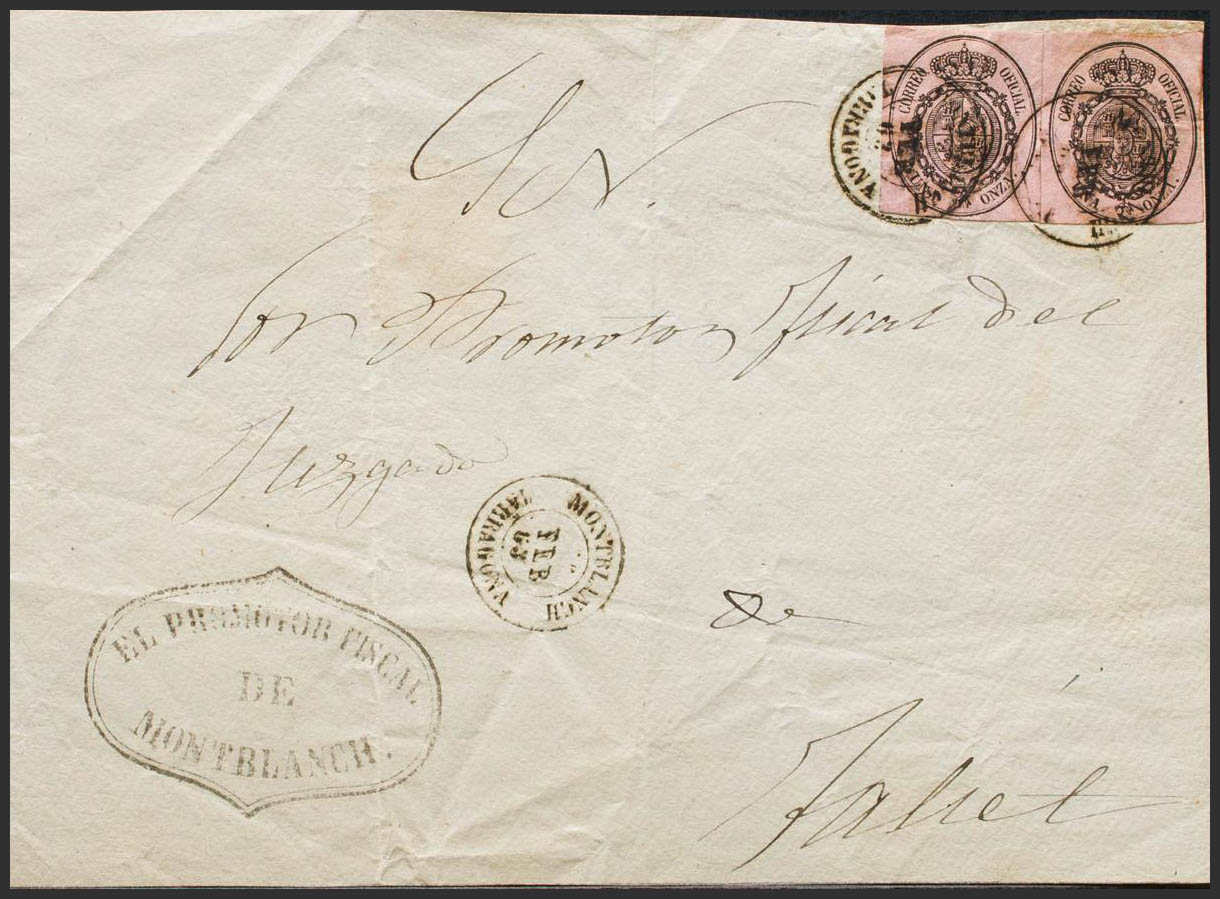 CORREO OFICIAL
ONZA.
CORREO OFICIAL
ONZA.
S. N.
Sor Promotor fiscal del
Juzgado
MONTBLANCH
TARRAGONA
FEB
63
de
Falset
EL PROMOTOR FISCAL
DE
MONTBLANCH.